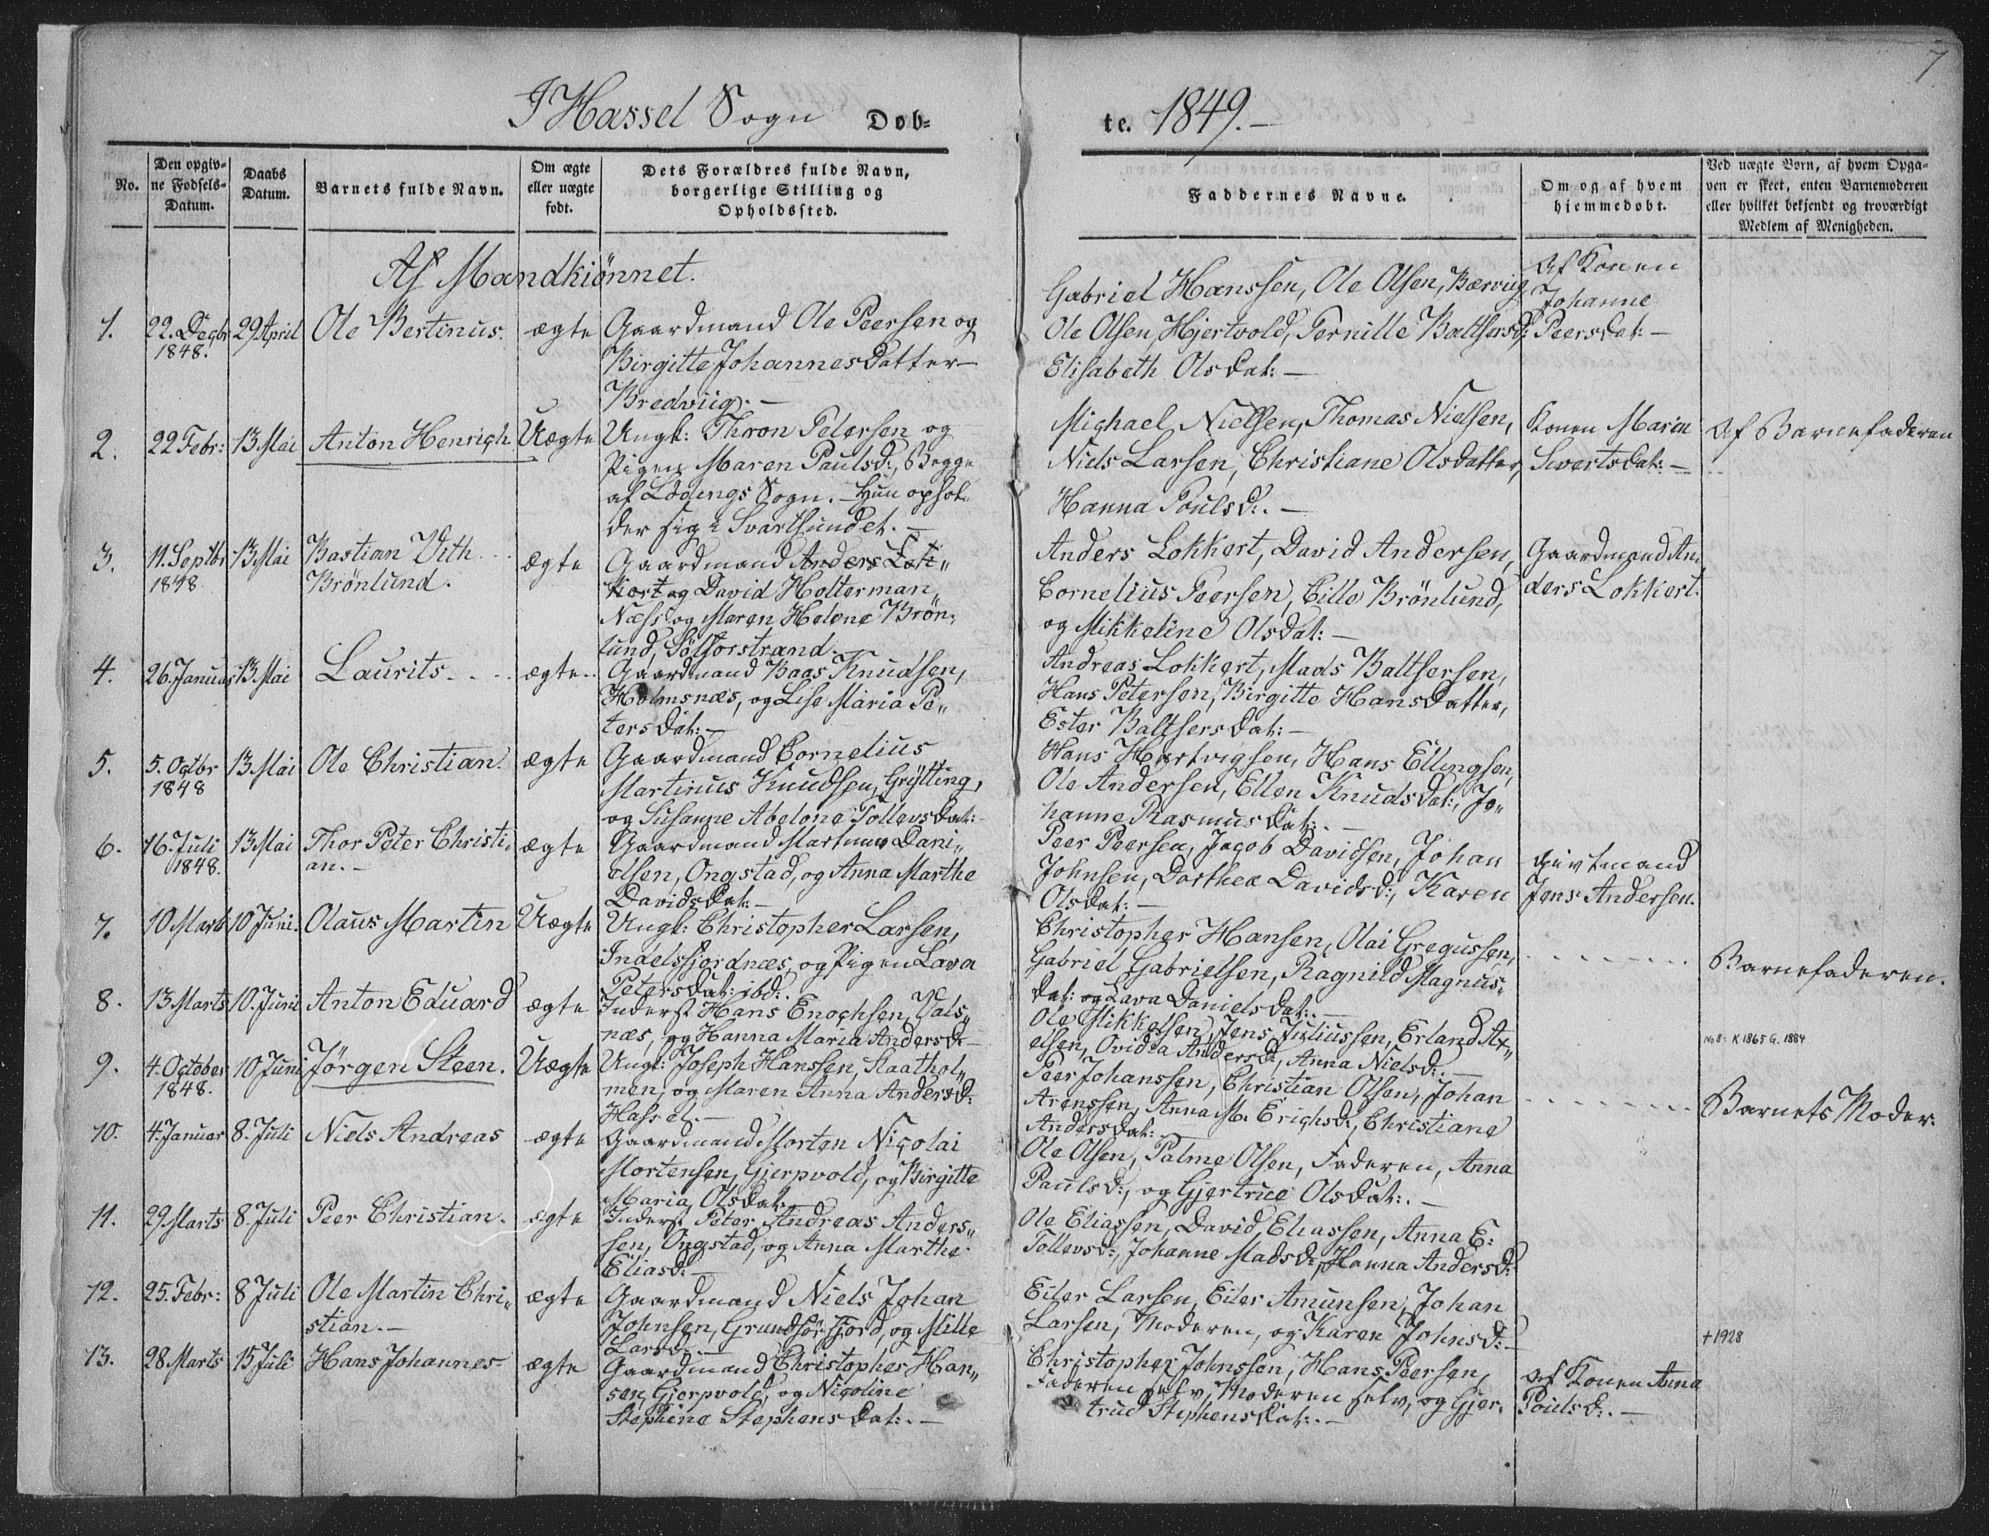 7
I Hassel Sogn Døb-
te. 1849.-
No.
Den opgiv-
ne Fødsels-
Datum.
Daabs
Datum.
Barnets fulde Navn.
Om ægte
eller uægte
født.
Dets Forældres fulde Navn,
borgerlige Stilling og
Opholdssted.
Faddernes Navne.
Om og af hvem
hjemmedøbt.
Ved uægte Børn, af hvem Opga-
ven er skeet, enten Barnemoderen
eller hvilket bekjendt og troværdigt
Medlem af Menigheden.
Af Mandkiønnet.
1.
22. Decbr
1848.
29 April
Ole Bertinus.
ægte
Gaardmand Ole Peersen og
Birgitte Johannesdatter-
Bredviig.-
Gabriel Hanssen, Ole Olsen, Bærviig
Ole Olsen Hjertvold, Pernille Balthersd:,
Elisabeth Olsdat:-
Af Konen
Johanne
Peersdat:-
2.
22 Febr:
13 Mai
Anton Henrich
Uægte
Ungk: Thron Petersen og
Pigen Maren Paulsd:, Begge
af Sogn.- Hun ophol-
der sig i Svartsundet.-
Michael Nielsen, Thomas Nielsen,
Niels Larsen, Christiane Olsdatter,
Hanna Poulsd:.-
Konen Maren
Swertsdat:-
Af Barnefaderen
3.
11. Septbr
1848.
13 Mai
Bastian Vith
Brönlund.
ægte
Gaardmand Anders Lok-
kert og David Holterman
Næss og Maren Helene Brön-
lund, Sölforstrand.
Anders Lokkert, David Andersen,
Cornelius Peersen, Cille Brönlund,
og Mikkeline Olsdat:-
Gaardmand An-
ders Lokkert.
4.
26 Januar
13 Mai
Laurits.
ægte
Gaardmand Baas Knudsen,
Holmsnæs, og Lise Maria Pe-
tersdat:-
Andreas Lokkert, Mads Balthersen,
Hans Petersen, Birgitte Hansdatter,
Ester Balthersdat:-
5.
5. Octbr
1848
13 Mai
Ole Christian.
ægte
Gaardmand Cornelius
Martinus Knudsen, Grÿtting,
og Susanne Abelone Tollevsdat:
Hans Hartvigsen, Hans Ellingsen,
Ole Andersen, Ellen Knudsdat:, Jo-
hanne Rasmusdat:.-
6.
16. Juli
1848.
13 Mai
Thor Peter Christi-
an.-
ægte
Gaardmand Martinus Dani-
elsen, Ongstad, og Anna Marthe
Davidsdat:-
Peer Peersen, Jacob Davidsen, Johan
Johnsen, Dorthea Davidsd:, Karen
Olsdat:-
Givtmand
Jens Andersen.
7.
10 Marts
10 Juni.
Olaus Martin
Uægte
Ungk: Christopher Larsen,
Indelsfjordnæs, og Pigen Lava
Petersdat: ibd:.
Christopher Hansen, Olai Gregussen,
Gabriel Gabrielsen, Ragnild Magnus-
dat: og Lava Danielsdat:-
Barnefaderen.
8.
13 Marts
10. Juni
Anton Eduard
ægte
Inderst Hans Enochsen, Vals-
næs, og Hanna Maria Andersd:-
Ole Mikkelsen, Jens Juliussen, Erland Ax-
elsen, Ovidia Andersd:, Anna Nielsd:-
No 8: K 1865 G. 1884
9.
4. October
1848.
10 Juni
Jörgen Steen.
Uægte
Ungk: Joseph Hanssen, Kaathol-
men, og Maren Anna Andersd:
Hassel.-
Peer Johanssen, Christian Olsen, Johan
Arenssen, Anna M. Erichsd:, Christiane
Andersdat:
Barnets Moder.
10.
4. Januar
8. Juli
Niels Andreas
ægte
Gaardmand Morten Nicolai
Mortensen, Gjerpvold, og Birgitte
Maria Olsdat:
Ole Olsen, Palme Olsen, Faderen, Anna
Paulsd:, og Gjertrue Olsdat:.-
11.
29 Marts
8. Juli
Peer Christian.
ægte
Inderst Peter Andreas Anders-
sen, Ongstad, og Anna Marthe
Eliasd:-
Ole Eliassen, David Eliassen, Anna E:
Tollevsd:, Johanne Madsd:, Hanna Andersd:
12.
25. Febr:
8 Juli
Ole Martin Chri-
stian.-
ægte
Gaardmand Niels Johan
Johnsen, Grundförfjord, og Mille
Larsd:.-
Eiler Larsen, Eiler Amunsen, Johan
Larsen, Moderen, og Karen Johnsd:-
+1928
13.
28. Marts
15 Juli
Hans Johannes
ægte
Gaardmand Christopher Han-
sen, Gjerpvold, og Nicoline
Stephine Stephensdat:.-
Christopher Johnssen, Hans Peersen,
Faderen selv, Moderen selv, og Gjer-
trud Stephensdat:.-
af Konen Anna
Poulsd:.-